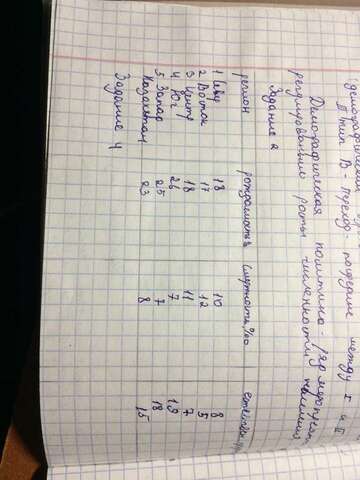 демографический
II тип В - переход - подтипе между I и II
Демографическая политика - ряд мероприят
регулирование роста численности населения
Задание 2
регион рождаемость смертность, %о естествен. пр
1 Север 18 10 8
2 Восток 17 12 5
3 Центр 18 11 7
4 Юг 26 7 19
5 Запад 25 7 18
Казахстан 23 8 15
Задание 4